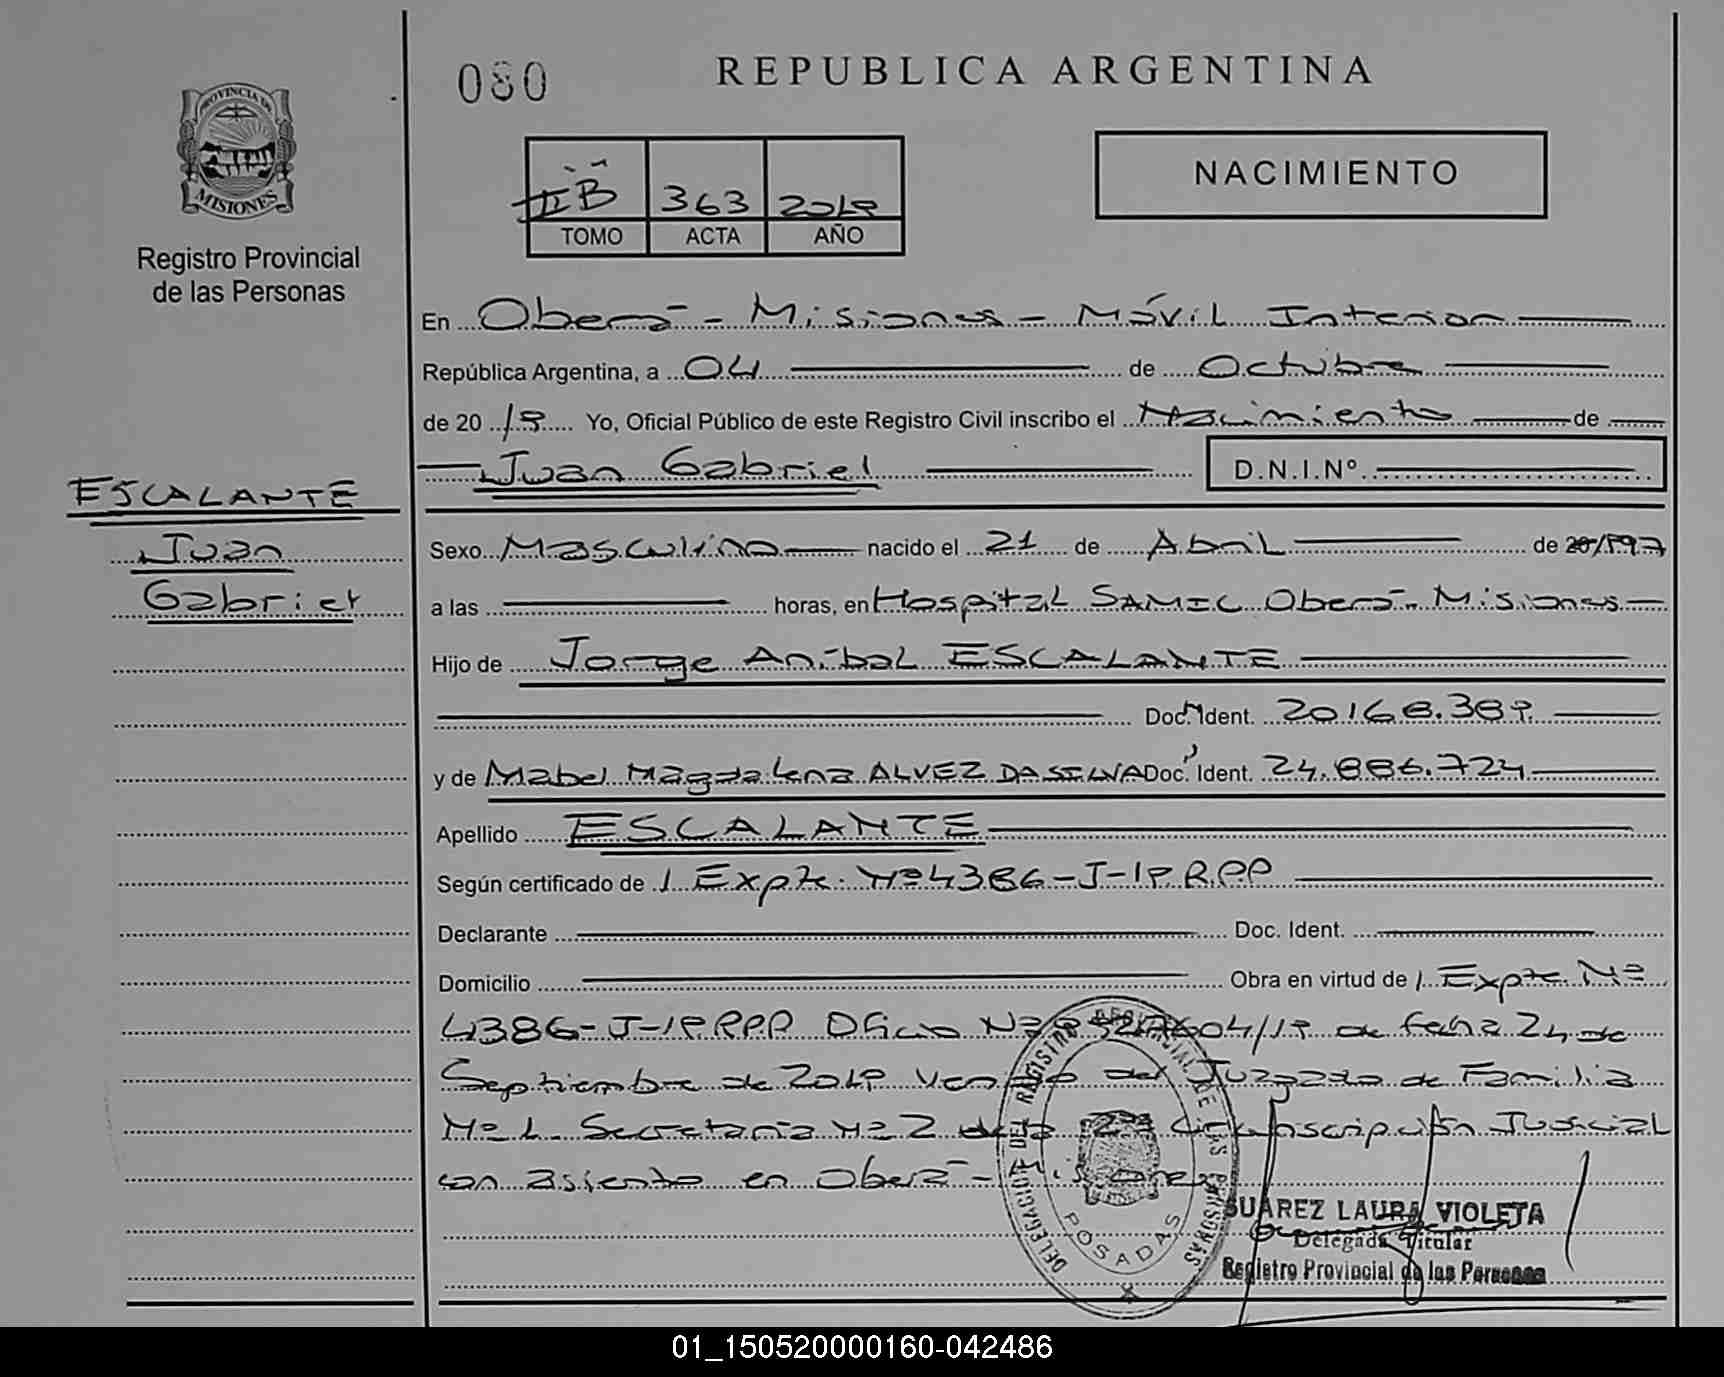 080
REPUBLICA ARGENTINA
PROVINCIA DE
MISIONES
Registro Provincial
de las Personas
II B 363 2019
TOMO ACTA AÑO
NACIMIENTO
En Oberá - Misiones - Móvil Interior
República Argentina, a 04 de Octubre
de 20 19 Yo, Oficial Público de este Registro Civil inscribo el Nacimiento de
Juan Gabriel D.N.I.Nº
ESCALANTE
Juan
Gabriel
Sexo Masculino nacido el 21 de Abril de 20/1997
a las horas, en Hospital SAMIC Oberá - Misiones
Hijo de Jorge Aníbal ESCALANTE
Doc. Ident. 20.168.389
y de Mabel Magdalena ALVEZ DA SILVA Doc. Ident. 24.886.724
Apellido ESCALANTE
Según certificado de / Expte. Nº 4386-J-19 R.P.P
Declarante Doc. Ident.
Domicilio Obra en virtud de / Expte. Nº
4386-J-19 R.P.P Oficio Nº /19 de fecha 24 de
Septiembre de 2019 del Juzgado de Familia
Nº 1 Secretaría Nº 2 de la 2º Circunscripción Judicial
con asiento en Oberá - Misiones
DELEGACION DEL REGISTRO PROVINCIAL DE LAS PERSONAS
POSADAS
SUAREZ LAURA VIOLETA
Delegada Titular
Registro Provincial de las Personas
01_150520000160-042486